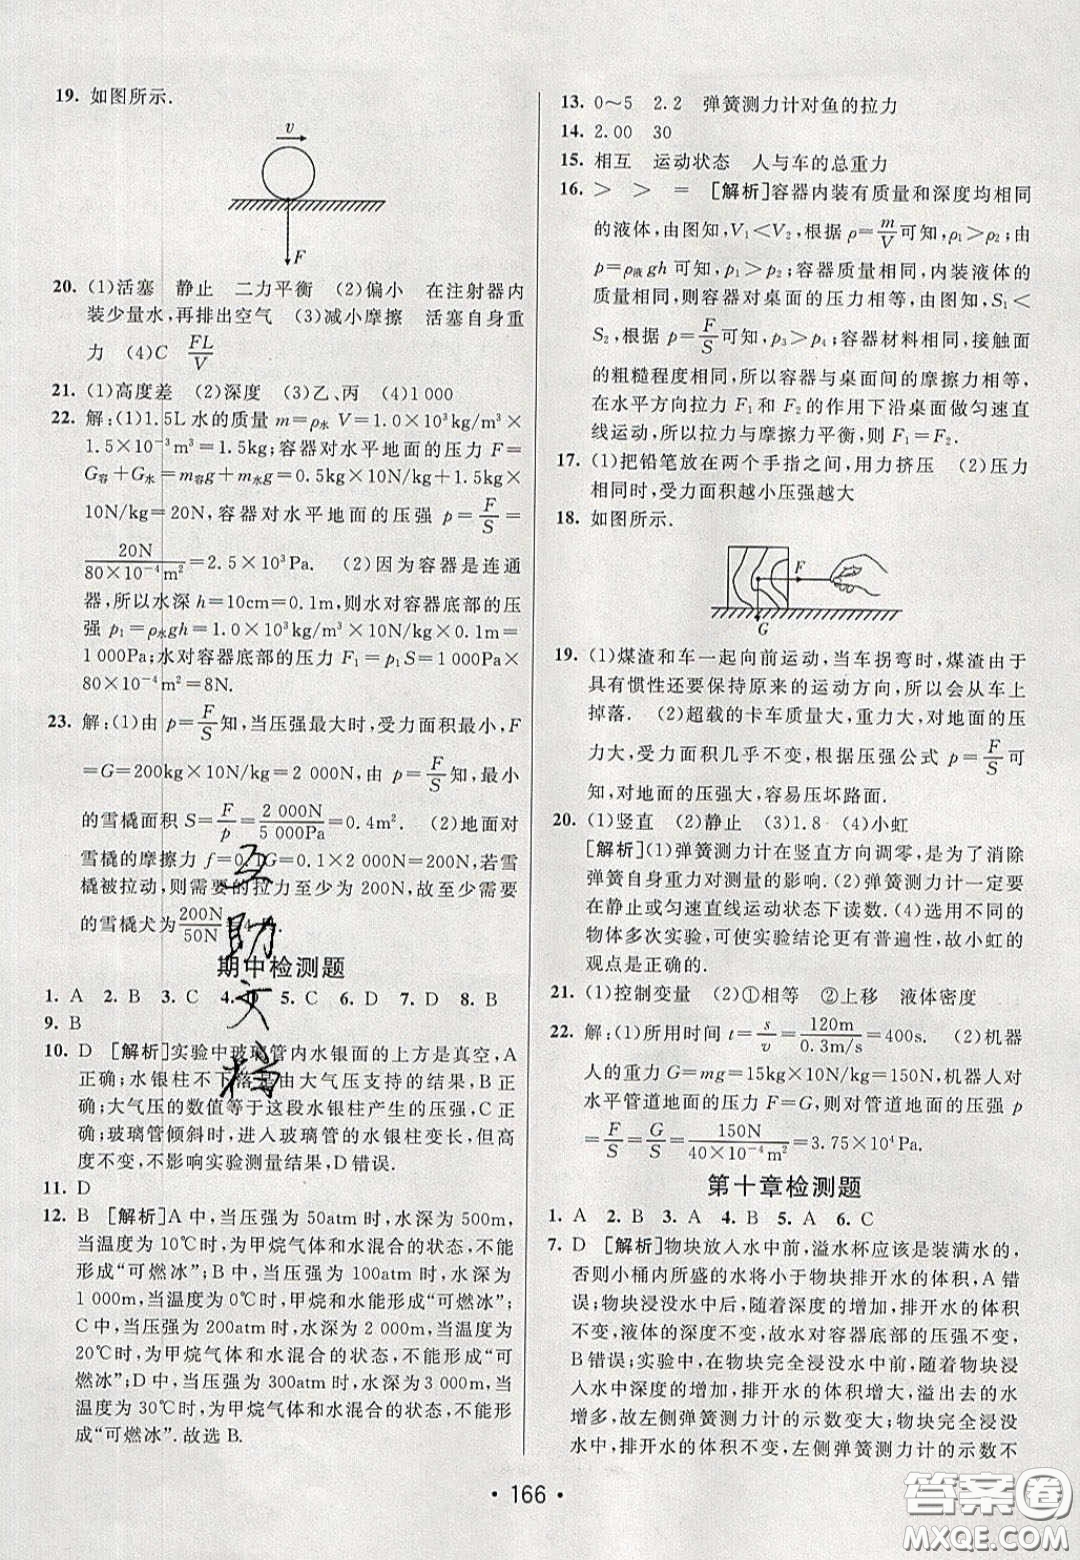 19. 如图所示.
v
F
20. (1)活塞　静止　二力平衡　(2)偏小　在注射器内
装少量水,再排出空气　(3)减小摩擦　活塞自身重
力　(4)C　FL/V
21. (1)高度差　(2)深度　(3)乙、丙　(4)1 000
22. 解:(1)1.5L 水的质量 m=ρ水 V=1.0×10³kg/m³×
1.5×10⁻³m³=1.5kg;容器对水平地面的压力 F=
G容+G水=m容g+m水g=0.5kg×10N/kg+1.5kg
×10N/kg=20N,容器对水平地面的压强 p=F/S=
20N/80×10⁻⁴m²=2.5×10³Pa.　(2)因为容器是连通
器,所以水深 h=10cm=0.1m,则水对容器底部的压
强 p₁=ρ水gh=1.0×10³kg/m³×10N/kg×0.1m=
1 000Pa;水对容器底部的压力 F₁=p₁S=1 000Pa×
80×10⁻⁴m²=8N.
23. 解:(1)由 p=F/S知,当压强最大时,受力面积最小,F
=G=200kg×10N/kg=2 000N,由 p=F/S知,最小
的雪橇面积 S=F/p=2 000N/5 000Pa=0.4m².　(2)地面对
雪橇的摩擦力 f=0. G=0.1×2 000N=200N,若雪
橇被拉动,则需要的拉力至少为 200N,故至少需要
的雪橇犬为200N/50N=4
期中检测题
1. A　2. B　3. C　4.　5. C　6. D　7. D　8. B
9. B
10. D　[解析]实验中玻璃管内水银面的上方是真空,A
正确;水银柱不下落是由大气压支持的结果,B 正
确;大气压的数值等于这段水银柱产生的压强,C 正
确;玻璃管倾斜时,进入玻璃管的水银柱变长,但高
度不变,不影响实验测量结果,D错误.
11. D
12. B　[解析]A 中,当压强为 50atm 时,水深为 500m,
当温度为 10℃时,为甲烷气体和水混合的状态,不能
形成“可燃冰”;B 中,当压强为 100atm 时,水深为
1 000m,当温度为0℃时,甲烷和水能形成“可燃冰”;
C 中,当压强为 200atm 时,水深为 2 000m,当温度为
20℃时,为甲烷气体和水混合的状态,不能形成“可
燃冰”;D 中,当压强为 300atm 时,水深为 3 000m,当
温度为 30℃时,为甲烷气体和水混合的状态,不能形
成“可燃冰”.故选 B.
互助文档
13. 0～5　2.2　弹簧测力计对鱼的拉力
14. 2.00　30
15. 相互　运动状态　人与车的总重力
16. ＞　＞　＝　[解析]容器内装有质量和深度均相同
的液体,由图知,V₁＜V₂,根据 ρ=m/V可知,ρ₁＞ρ₂;由
p=ρ液 gh 可知,p₁＞p₂;容器质量相同,内装液体的
质量相同,则容器对桌面的压力相等,由图知,S₁＜
S₂,根据 p=F/S可知,p₃＞p₄;容器材料相同,接触面
的粗糙程度相同,所以容器与桌面间的摩擦力相等,
在水平方向拉力 F₁和 F₂的作用下沿桌面做匀速直
线运动,所以拉力与摩擦力平衡,则 F₁=F₂.
17. (1)把铅笔放在两个手指之间,用力挤压　(2)压力
相同时,受力面积越小压强越大
18. 如图所示.
F
G
19. (1)煤渣和车一起向前运动,当车拐弯时,煤渣由于
具有惯性还要保持原来的运动方向,所以会从车上
掉落.　(2)超载的卡车质量大,重力大,对地面的压
力大,受力面积几乎不变,根据压强公式 p=F/S可
知,对地面的压强大,容易压坏路面.
20. (1)竖直　(2)静止　(3)1.8　(4)小虹
[解析](1)弹簧测力计在竖直方向调零,是为了消除
弹簧自身重力对测量的影响.(2)弹簧测力计一定要
在静止或匀速直线运动状态下读数.(4)选用不同的
物体多次实验,可使实验结论更有普遍性,故小虹的
观点是正确的.
21. (1)控制变量　(2)①相等　②上移　液体密度
22. 解:(1)所用时间 t=s/v=120m/0.3m/s=400s.　(2)机器
人的重力 G=mg=15kg×10N/kg=150N,机器人对
水平管道地面的压力 F=G,则对管道地面的压强 p
=F/S=G/S=150N/40×10⁻⁴m²=3.75×10⁴Pa.
第十章检测题
1. A　2. B　3. A　4. B　5. A　6. C
7. D　[解析]物块放入水中前,溢水杯应该是装满水的,
否则小桶内所盛的水将小于物块排开水的体积,A 错
误;物块浸没水中后,随着深度的增加,排开水的体积
不变,液体的深度不变,故水对容器底部的压强不变,
B 错误;实验中,在物块完全浸没水中前,随着物块浸
入水中深度的增加,排开水的体积增大,溢出去的水
增多,故左侧弹簧测力计的示数变大;物块完全浸没
水中,排开水的体积不变,左侧弹簧测力计的示数不
· 166 ·
答案圈
MXQE.COM